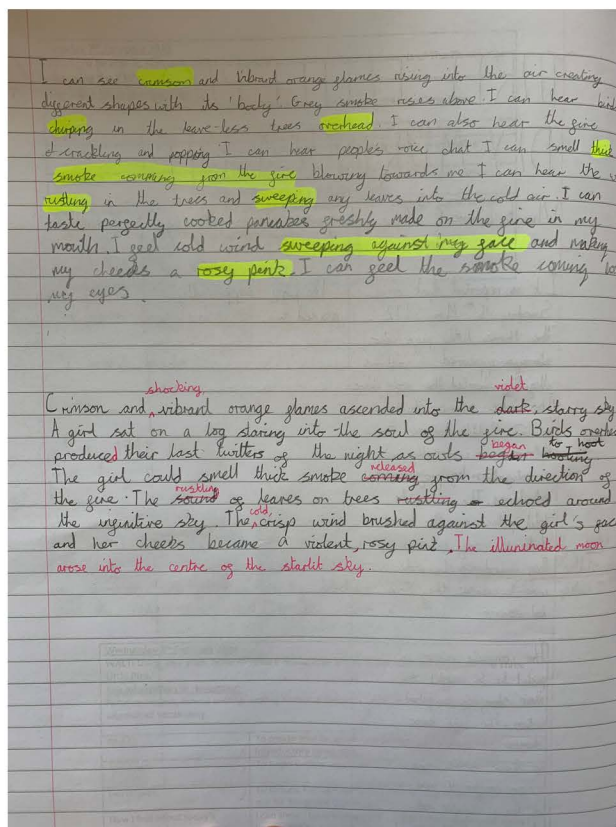 I can see crimson and vibrant orange flames rising into the air creating
different shapes with its 'body'. Grey smoke rises above. I can hear
chirping in the leave-less trees overhead. I can also hear the fire
crackling and popping I can hear peoples voice chat I can smell
smoke coming from the fire blowing towards me I can hear the
rustling in the trees and sweeping any leaves into the cold air. I can
taste perfectly cooked pancakes freshly made on the fire in my
mouth. I feel cold wind sweeping against my face and making
my cheeks a rosy pink. I can feel the smoke coming
my eyes.
shocking violet
Crimson and vibrant orange flames ascended into the dark, starry sky
A girl sat on a log staring into the soul of the fire. Birds
began to hoot
produced their last twitters of the night as owls hooting
released
The girl could smell thick smoke coming from the direction of
rustling
the fire. The sound of leaves on trees rustling echoed around
cold,
the infinitive sky. The crisp wind brushed against the girl's
and her cheeks became a violent, rosy pink. The illuminated moon
arose into the centre of the starlit sky.